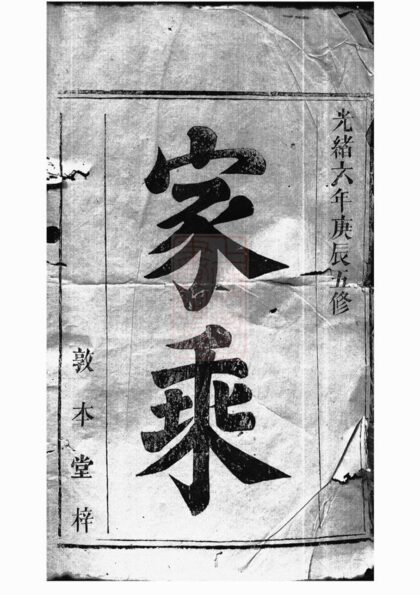 光緒六年庚辰五修
家乘
敦本堂梓